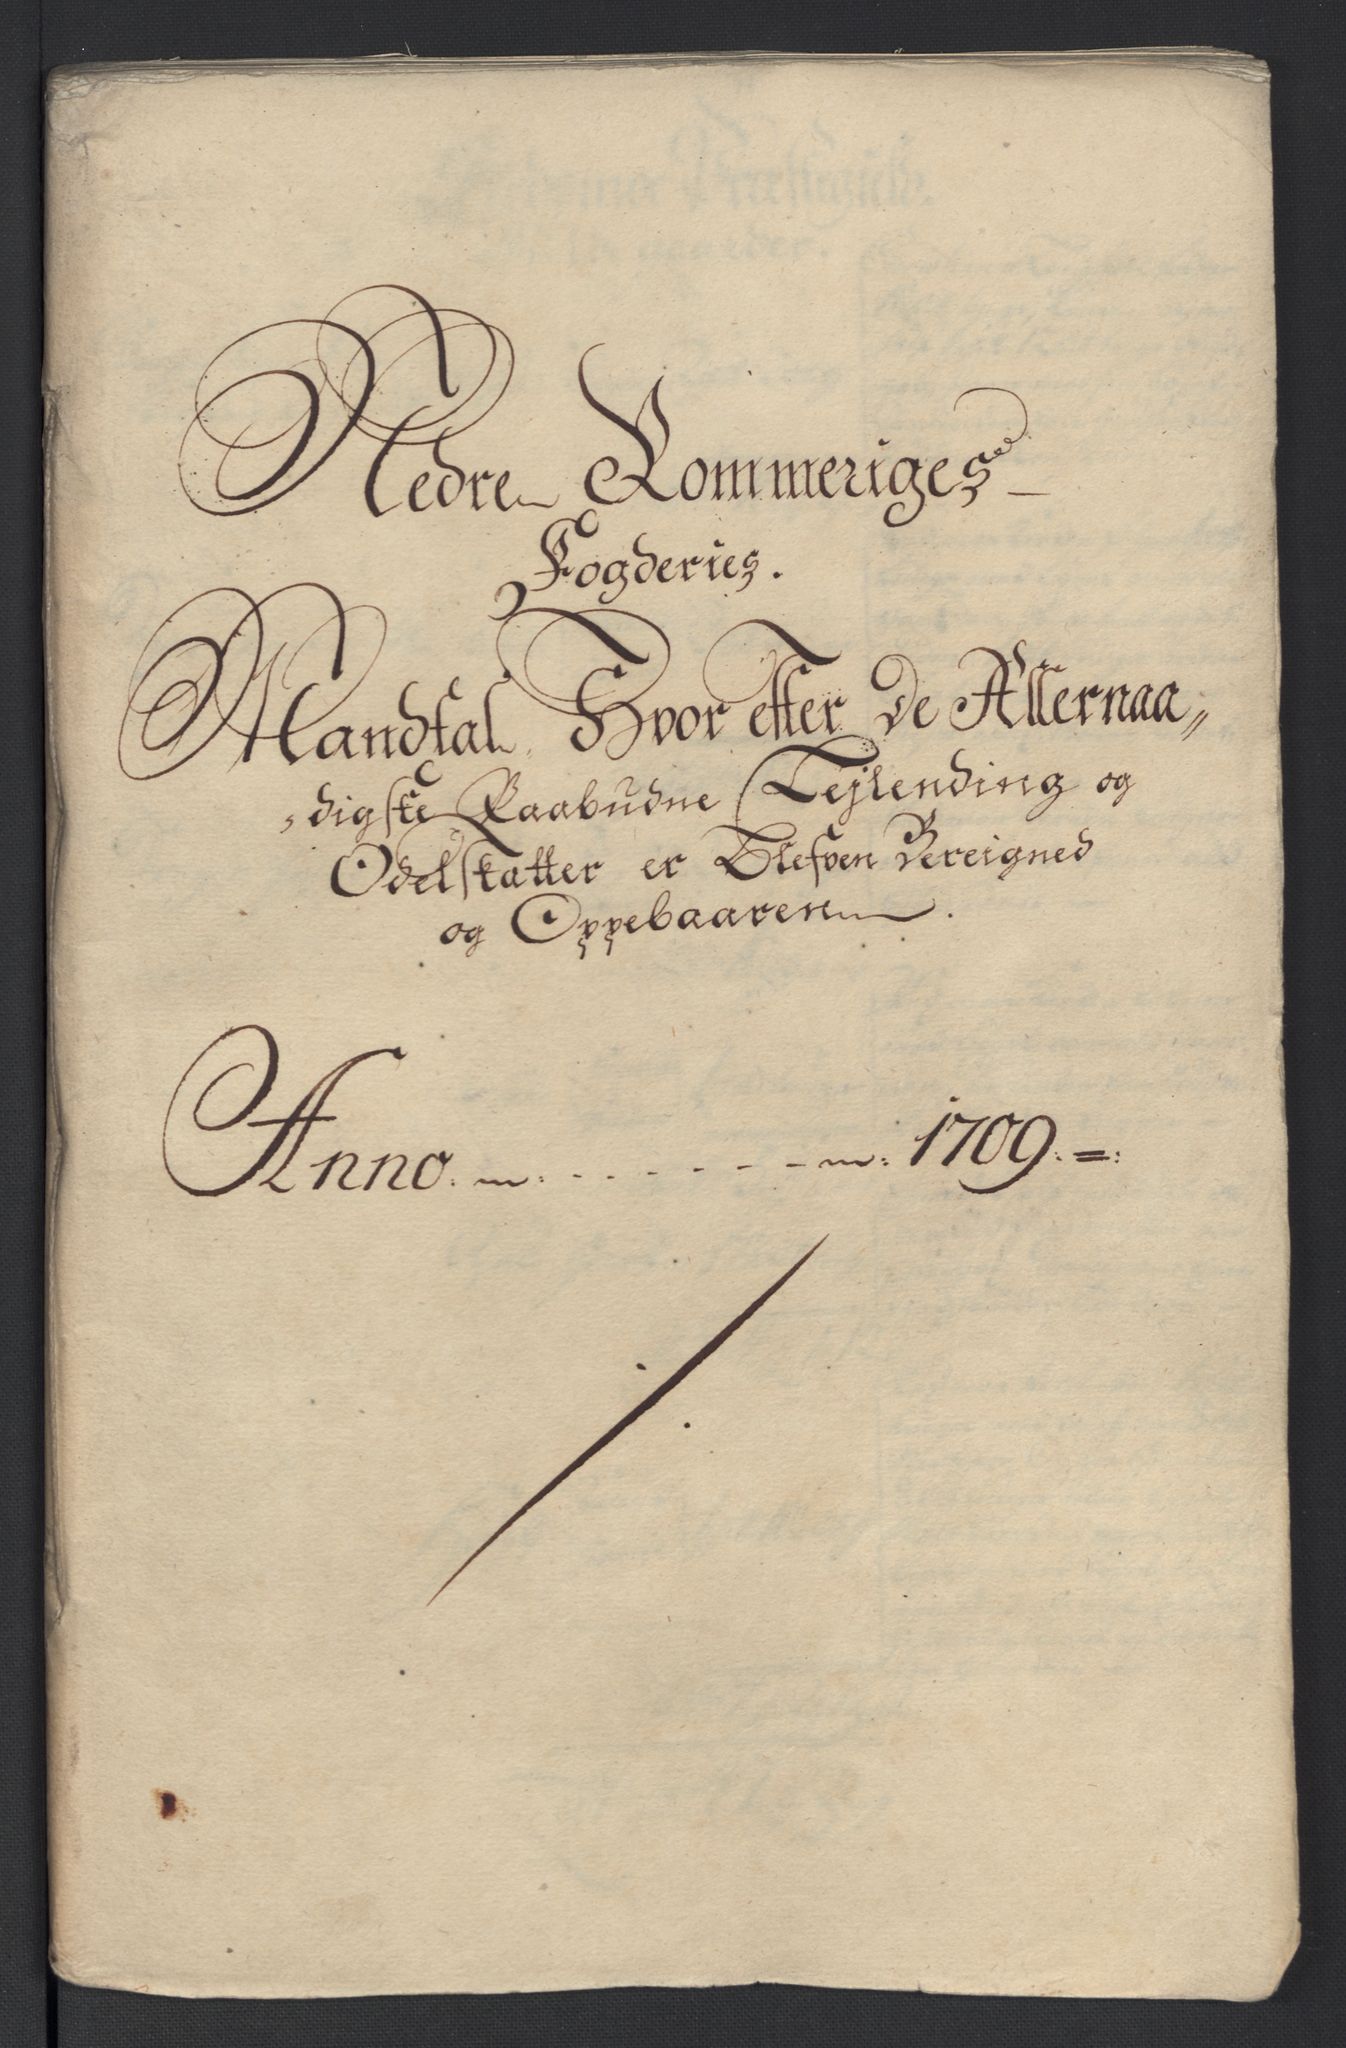 Nedre Rommeriges
Fogderies.
Mandtal Hvor effter de Allernaa„
„digste Paabudne Lejlending og
Odelskatter er blefven Bereigned
og Oppebaaren.
Anno. . . . . . . 1709. =: